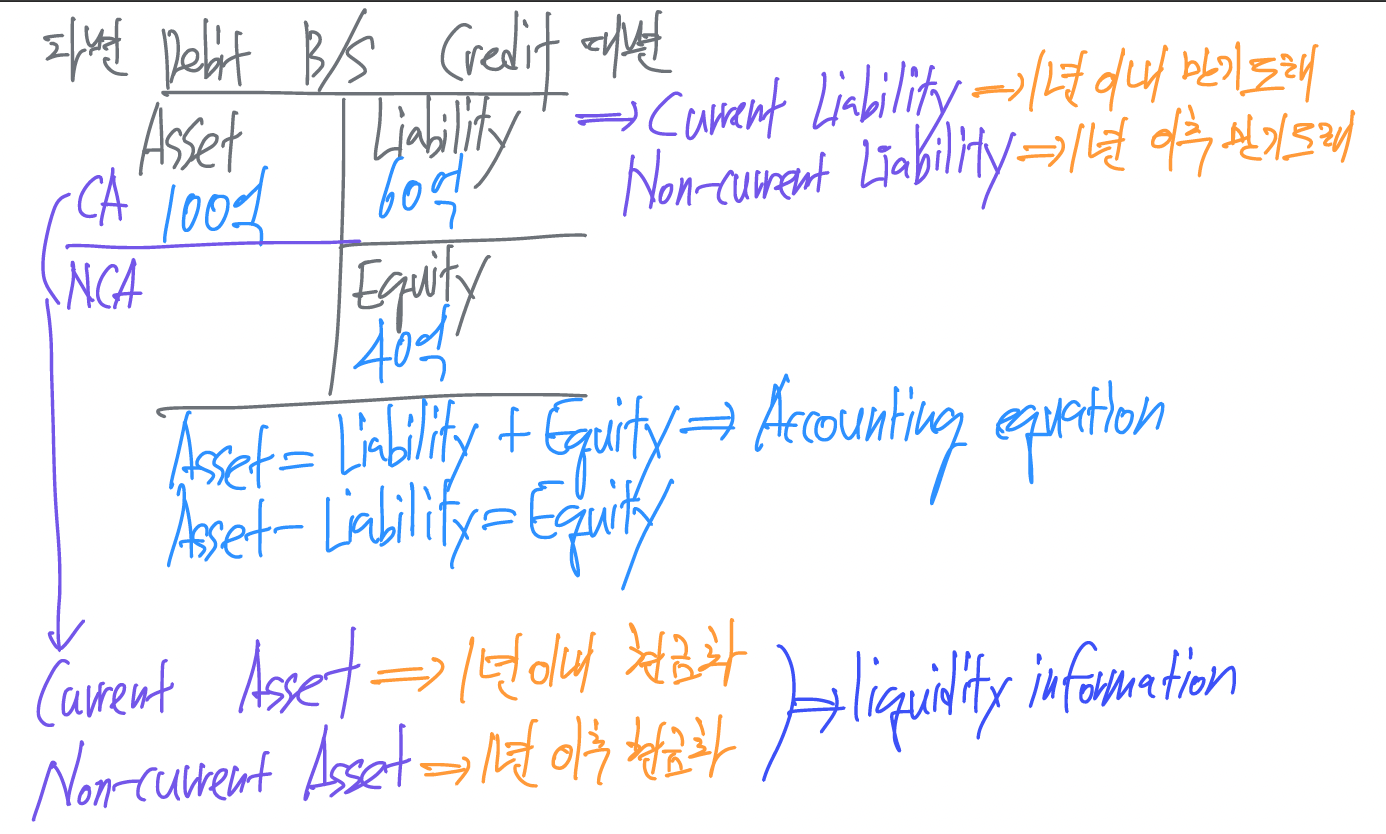 차변 Debit B/S Credit 대변
Asset Liability
⇒ Current Liability ⇒ 1년 이내 만기도래
Non-current Liability ⇒ 1년 이후 만기도래
CA 100억 60억
NCA Equity
40억
Asset = Liability + Equity ⇒ Accounting equation
Asset - Liability = Equity
Current Asset ⇒ 1년 이내 현금화
Non-current Asset ⇒ 1년 이후 현금화
⇒ liquidity information